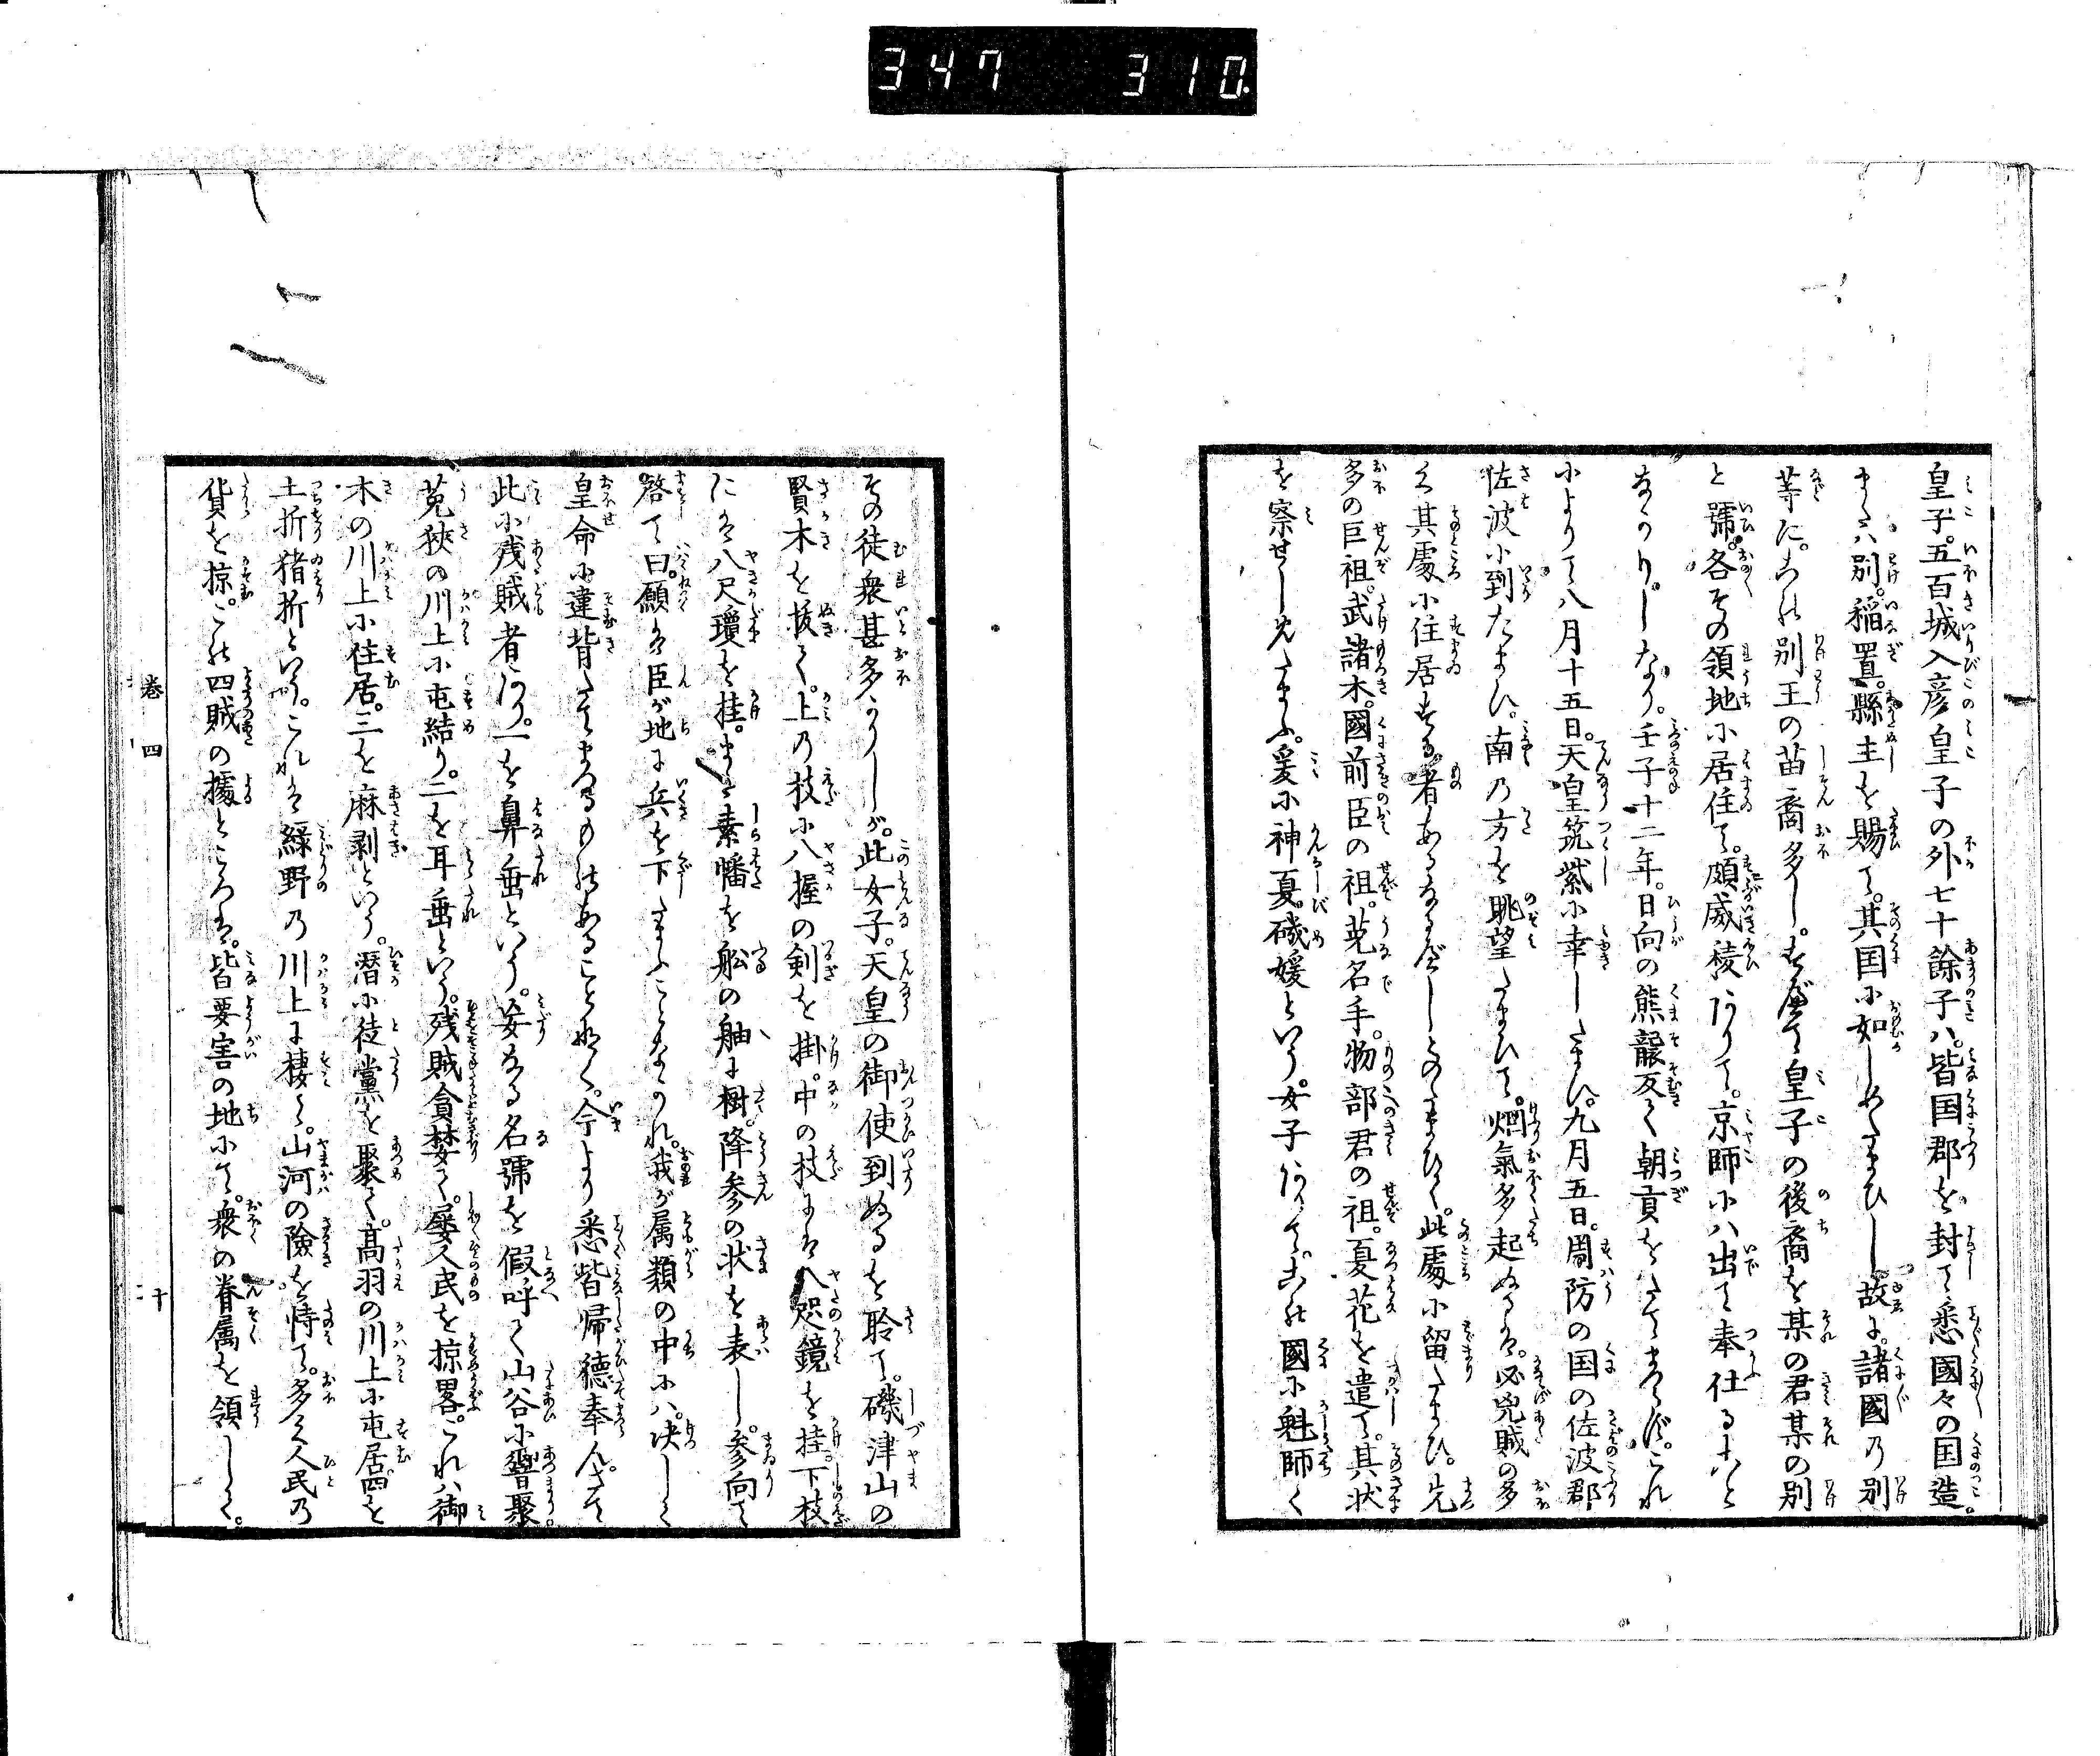 347 310
皇子。五百城入彦皇子の外七十餘子ハ。皆国郡を封て悉國々の国造。
または別。稲置。縣主を賜て。其国に如しめたまひし故に。諸國の別
等に。この別王の苗裔多し。すべて皇子の後裔を某の君某の別
と號。各その領地に居住て。頗威稜ありて。京師にハ出て奉仕ること
なかりしなり。壬子十二年。日向の熊襲反く朝貢をたてまつらず。これ
によりて八月十五日。天皇筑紫に幸したまひ。九月五日。周防の国の佐波郡
佐波に到たまひ。南の方を眺望たまひて。烟氣多起ぬるは。必兇賊の多
く其處に住居する者あるなるべしとのたまひて。此處に留たまひ。先
多の巨祖。武諸木。國前臣の祖。菟名手。物部君の祖。夏花を遣て。其状
を察せしめたまふ。爰に神夏磯媛といふ。女子ありて。この國に魁師く
その徒衆甚多かりしが。此女子。天皇の御使到ぬるを聆て。磯津山の
賢木を抜く。上の枝に八握の剣を掛。中の枝には八咫鏡を挂。下枝
には八尺瓊を挂。また素幡を舩の舳に樹。降参の状を表し。参向て
啓て曰。願は臣が地に兵を下たまふことなかれ。我が属類の中にハ。决して
皇命に違背たてまつるものあることなく。今より悉皆帰德奉んさて
此に残賊者あり。一を鼻垂といふ。妄なる名號を假呼て山谷に響聚。
菟狹の川上に屯結り。二を耳垂といふ。残賊貪婪く。屡人民を掠畧。これハ御
木の川上に住居。三を麻剥といふ。潜に徒黨を聚て。高羽の川上に屯居。四を
土折猪折といふ。これは緑野の川上に棲て。山河の險を恃て。多く人民の
貨を掠。この四賊の據ところは。皆要害の地にて。衆の眷属を領して。
巻四
十